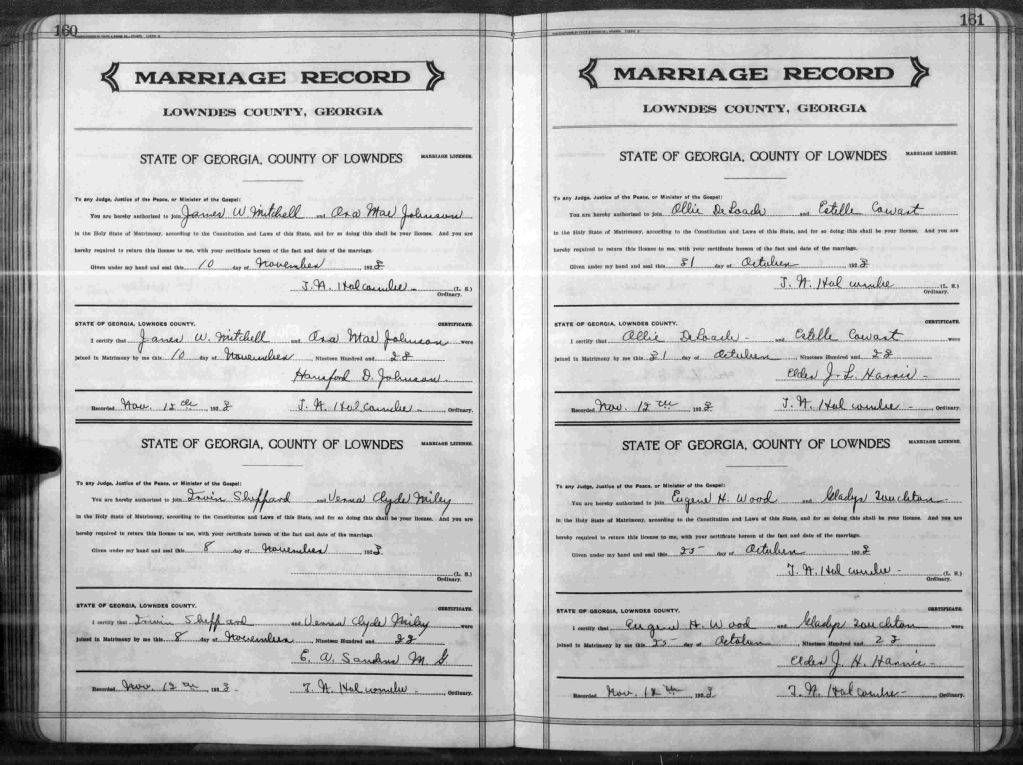 160
MARRIAGE RECORD
LOWNDES COUNTY, GEORGIA
STATE OF GEORGIA, COUNTY OF LOWNDES MARRIAGE LICENSE.
To any Judge, Justice of the Peace, or Minister of the Gospel:
You are hereby authorized to join James W Mitchell and Ora Mae Johnson
in the Holy State of Matrimony, according to the Constitution and Laws of this State, and for so doing this shall be your license. And you are
hereby required to return this license to me, with your certificate hereon of the fact and date of the marriage.
Given under my hand and seal this 10 day of November 192
(L. S.)
Ordinary.
STATE OF GEORGIA, LOWNDES COUNTY. CERTIFICATE.
I certify that James W. Mitchell and Ora Mae Johnson were
joined in Matrimony by me this 10 day of November Nineteen Hundred and
Hansford D. Johnson
Recorded Nov. 12th 192 Ordinary.
STATE OF GEORGIA, COUNTY OF LOWNDES MARRIAGE LICENSE.
To any Judge, Justice of the Peace, or Minister of the Gospel:
You are hereby authorized to join Irwin Sheppard and Verna Clyde Miley
in the Holy State of Matrimony, according to the Constitution and Laws of this State, and for so doing this shall be your license. And you are
hereby required to return this license to me, with your certificate hereon of the fact and date of the marriage.
Given under my hand and seal this 8 day of November 192
(L. S.)
Ordinary.
STATE OF GEORGIA, LOWNDES COUNTY. CERTIFICATE.
I certify that Irwin Sheppard and Verna Clyde Miley were
joined in Matrimony by me this 8 day of November Nineteen Hundred and
E. A. Sanders M G
Recorded Nov. 12th 192 Ordinary.
161
MARRIAGE RECORD
LOWNDES COUNTY, GEORGIA
STATE OF GEORGIA, COUNTY OF LOWNDES MARRIAGE LICENSE.
To any Judge, Justice of the Peace, or Minister of the Gospel:
You are hereby authorized to join Ollie DeLoach and Estelle Cowart
in the Holy State of Matrimony, according to the Constitution and Laws of this State, and for so doing this shall be your license. And you are
hereby required to return this license to me, with your certificate hereon of the fact and date of the marriage.
Given under my hand and seal this day of October 192
(L. S.)
Ordinary.
STATE OF GEORGIA, LOWNDES COUNTY. CERTIFICATE.
I certify that Ollie DeLoach and Estelle Cowart were
joined in Matrimony by me this day of October Nineteen Hundred and
Elder J. L. Harris
Recorded Nov. 12th 192 Ordinary.
STATE OF GEORGIA, COUNTY OF LOWNDES MARRIAGE LICENSE.
To any Judge, Justice of the Peace, or Minister of the Gospel:
You are hereby authorized to join Eugene H. Wood and Gladys Touchton
in the Holy State of Matrimony, according to the Constitution and Laws of this State, and for so doing this shall be your license. And you are
hereby required to return this license to me, with your certificate hereon of the fact and date of the marriage.
Given under my hand and seal this 25 day of October 192
(L. S.)
Ordinary.
STATE OF GEORGIA, LOWNDES COUNTY. CERTIFICATE.
I certify that Eugene H. Wood and Gladys Touchton were
joined in Matrimony by me this 25 day of October Nineteen Hundred and
Elder J. H. Harris
Recorded Nov. 12th 192 Ordinary.